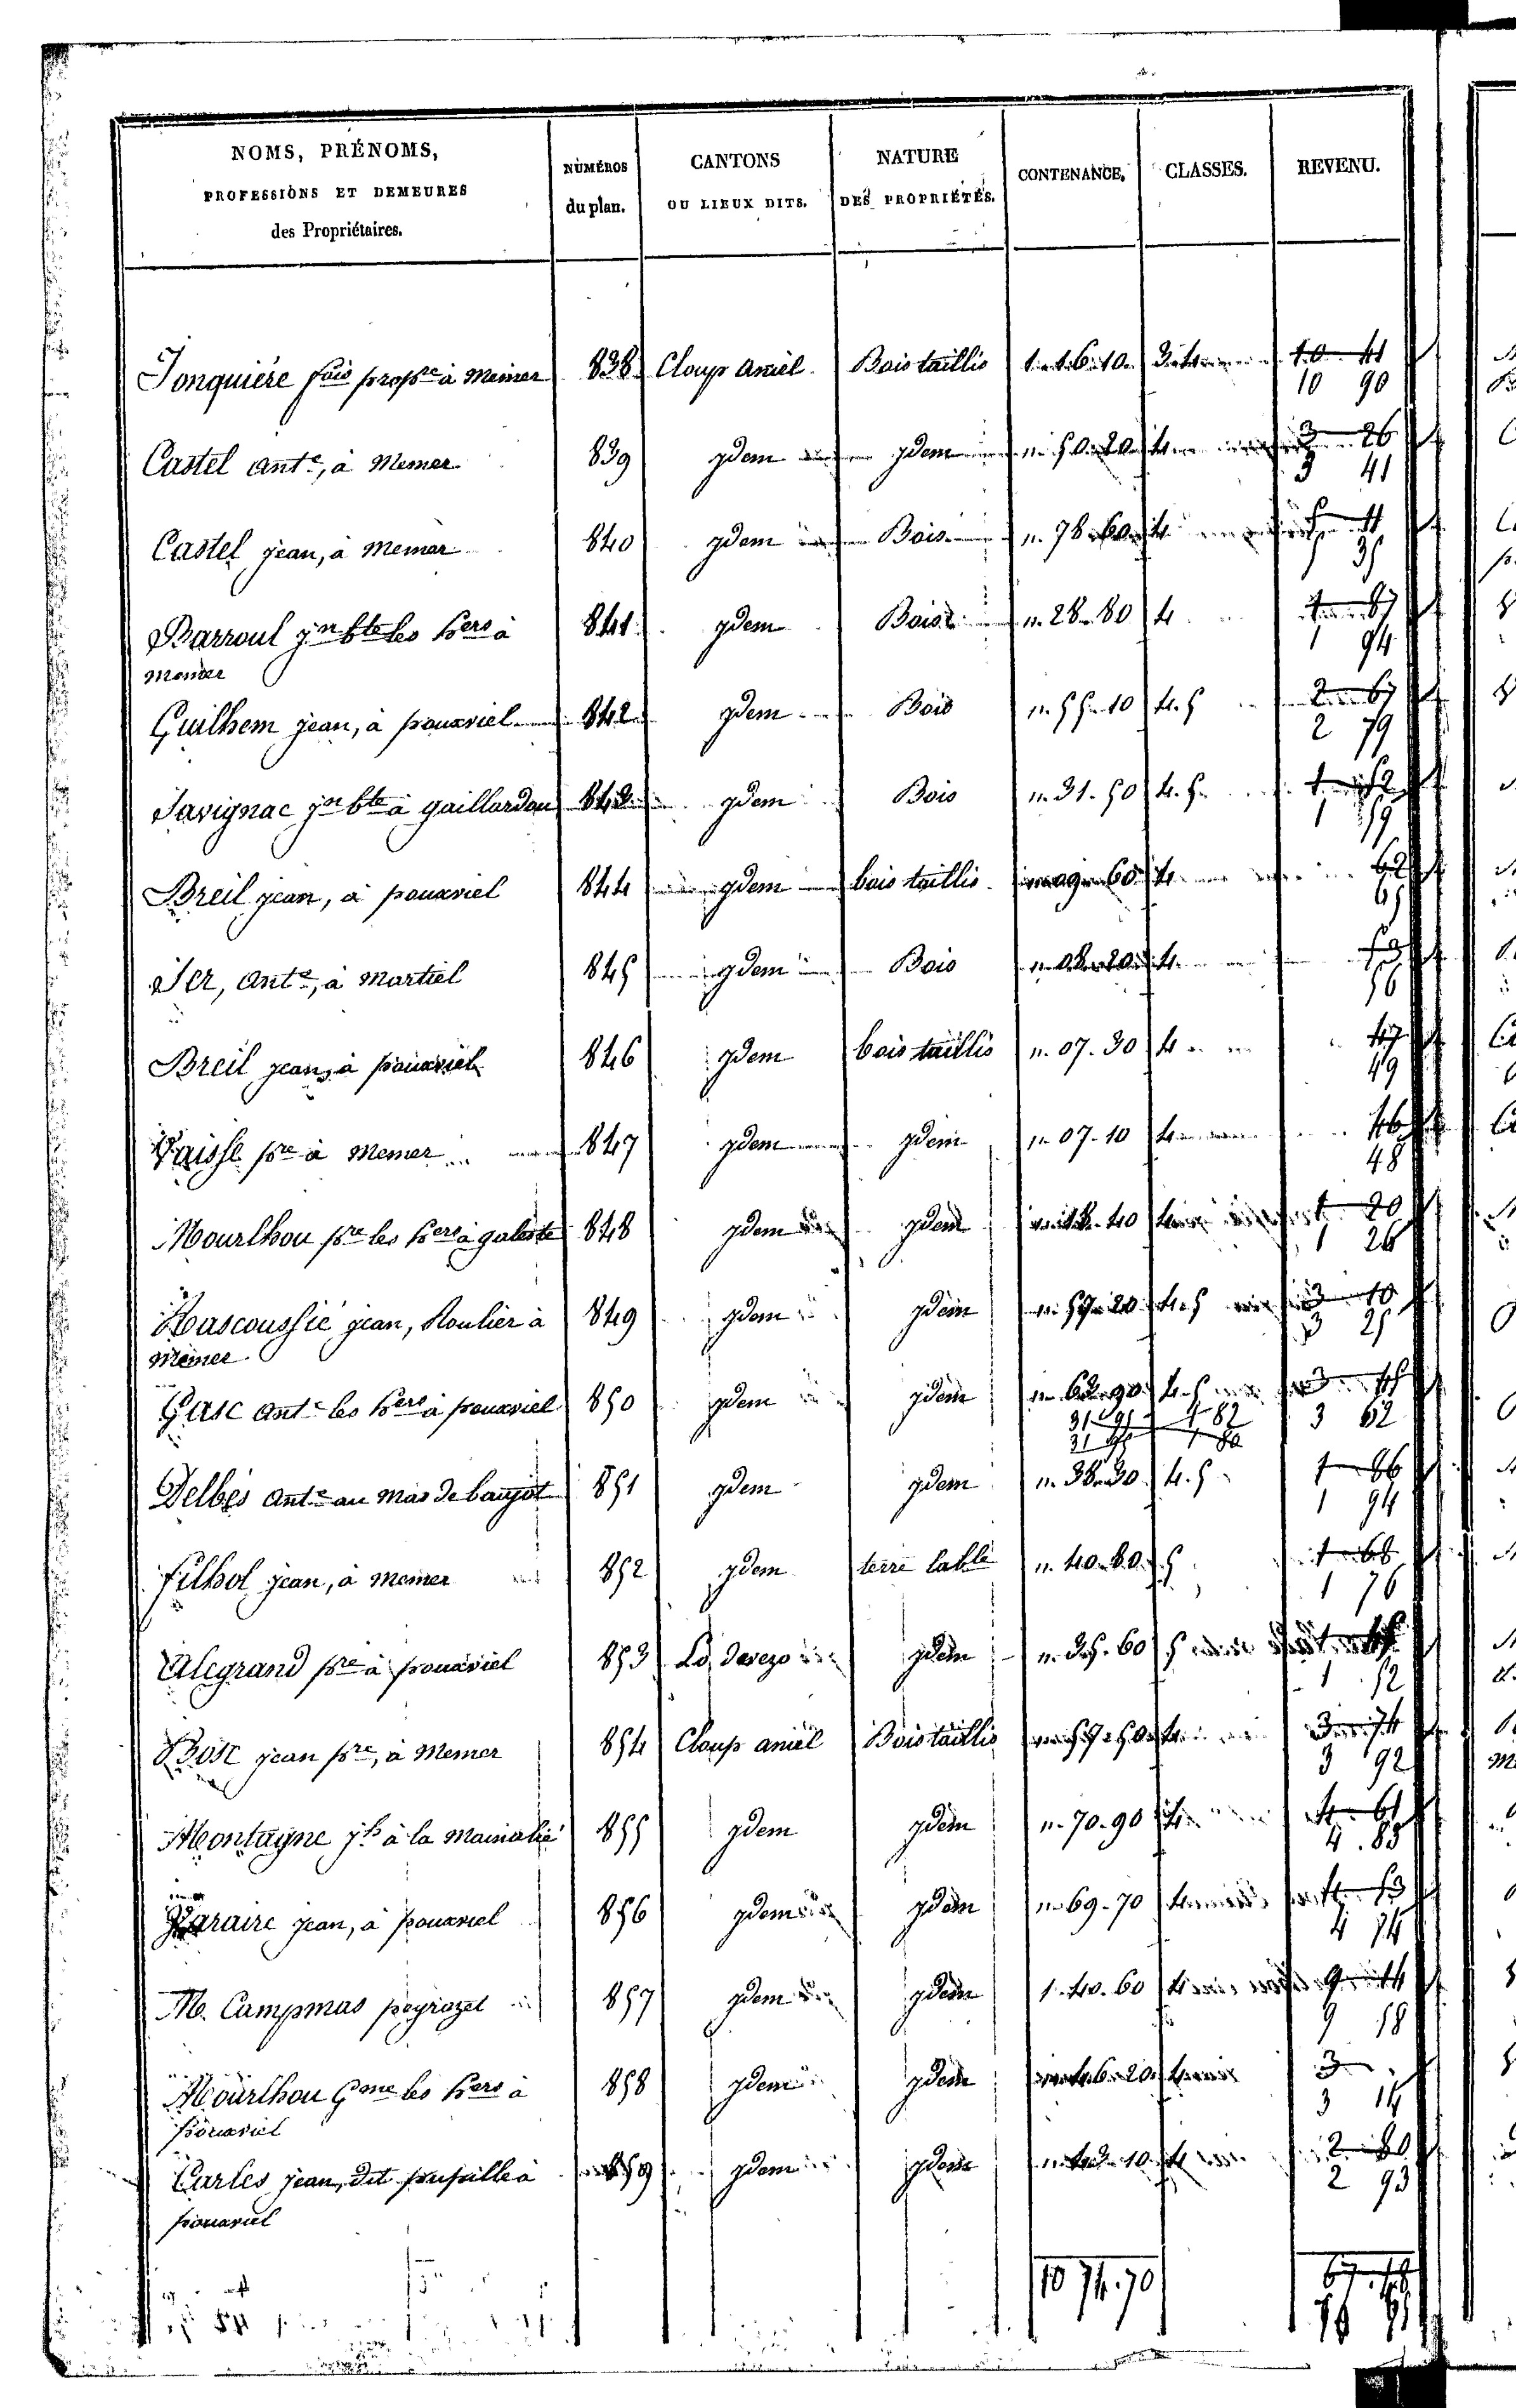 NOMS, PRÉNOMS, PROFESSIONS ET DEMEURES des Propriétaires. NUMÉROS du plan. CANTONS OU LIEUX DITS. NATURE DES PROPRIÉTÉS. CONTENANCE. CLASSES. REVENU.
Jonquière fois propre à Memer 838 Cloup aniel Bois taillis 1. 16. 10 3. 4 10 41
10 90
Castel ante, à Memer 839 ydem ydem 50. 20 4 3 26
3 41
Castel jean, à Memer 840 ydem Bois 78. 60 4 5 11
5 35
Barroul jn bte les hers à 841 ydem Bois 28. 80 4 1 87
Memer 1 94
Guilhem jean, à pouxviel 842 ydem Bois 55. 10 4. 5 2 67
2 79
Savignac jn bte à gaillardou 843 ydem Bois 31. 50 4. 5 1 52
1 59
Breil jean, à pouxviel 844 ydem bois taillis 09. 60 4 62
65
Ser, ante, à Martiel 845 ydem Bois 08. 20 4 53
56
Breil jean, à pouxviel 846 ydem bois taillis 07. 30 4 47
49
Vaisse pre à Memer 847 ydem ydem 07. 10 4 46
48
Mourlhou pre les hers à 848 ydem ydem 18. 40 4 1 20
1 26
Rascoussié jean, Roulier à 849 ydem ydem 57. 20 4. 5 3 10
Memer 3 25
Gasc ante les hers à pouxviel 850 ydem ydem 63. 90 4. 5 3
31 95 1 82 3 62
31 95 1 80
Delbès ante au mas de baujot 851 ydem ydem 38. 30 4. 5 1 86
1 94
filhol jean, à Memer 852 ydem terre lable 40. 80 5 1 68
1 76
Alegrand pre à pouxviel 853 Lo devezo ydem 35. 60 5 1
1 52
Bosc jean pre, à Memer 854 Cloup aniel Bois taillis 57. 50 4 3 74
3 92
Montagne jh à la 855 ydem ydem 70. 90 4 4 61
4. 83
Vararire jean, à pouxviel 856 ydem ydem 69. 70 4 4 53
4 74
M. Campmas peyrozet 857 ydem ydem 1. 40. 60 4 9 14
9 58
Mourlhou Gme les hers à 858 ydem ydem 46. 20 4 3
pouxviel 3 14
Carles jean, dit pupille à 859 ydem ydem 43. 10 4 2 80
pouxviel 2 93
10 74. 70 67